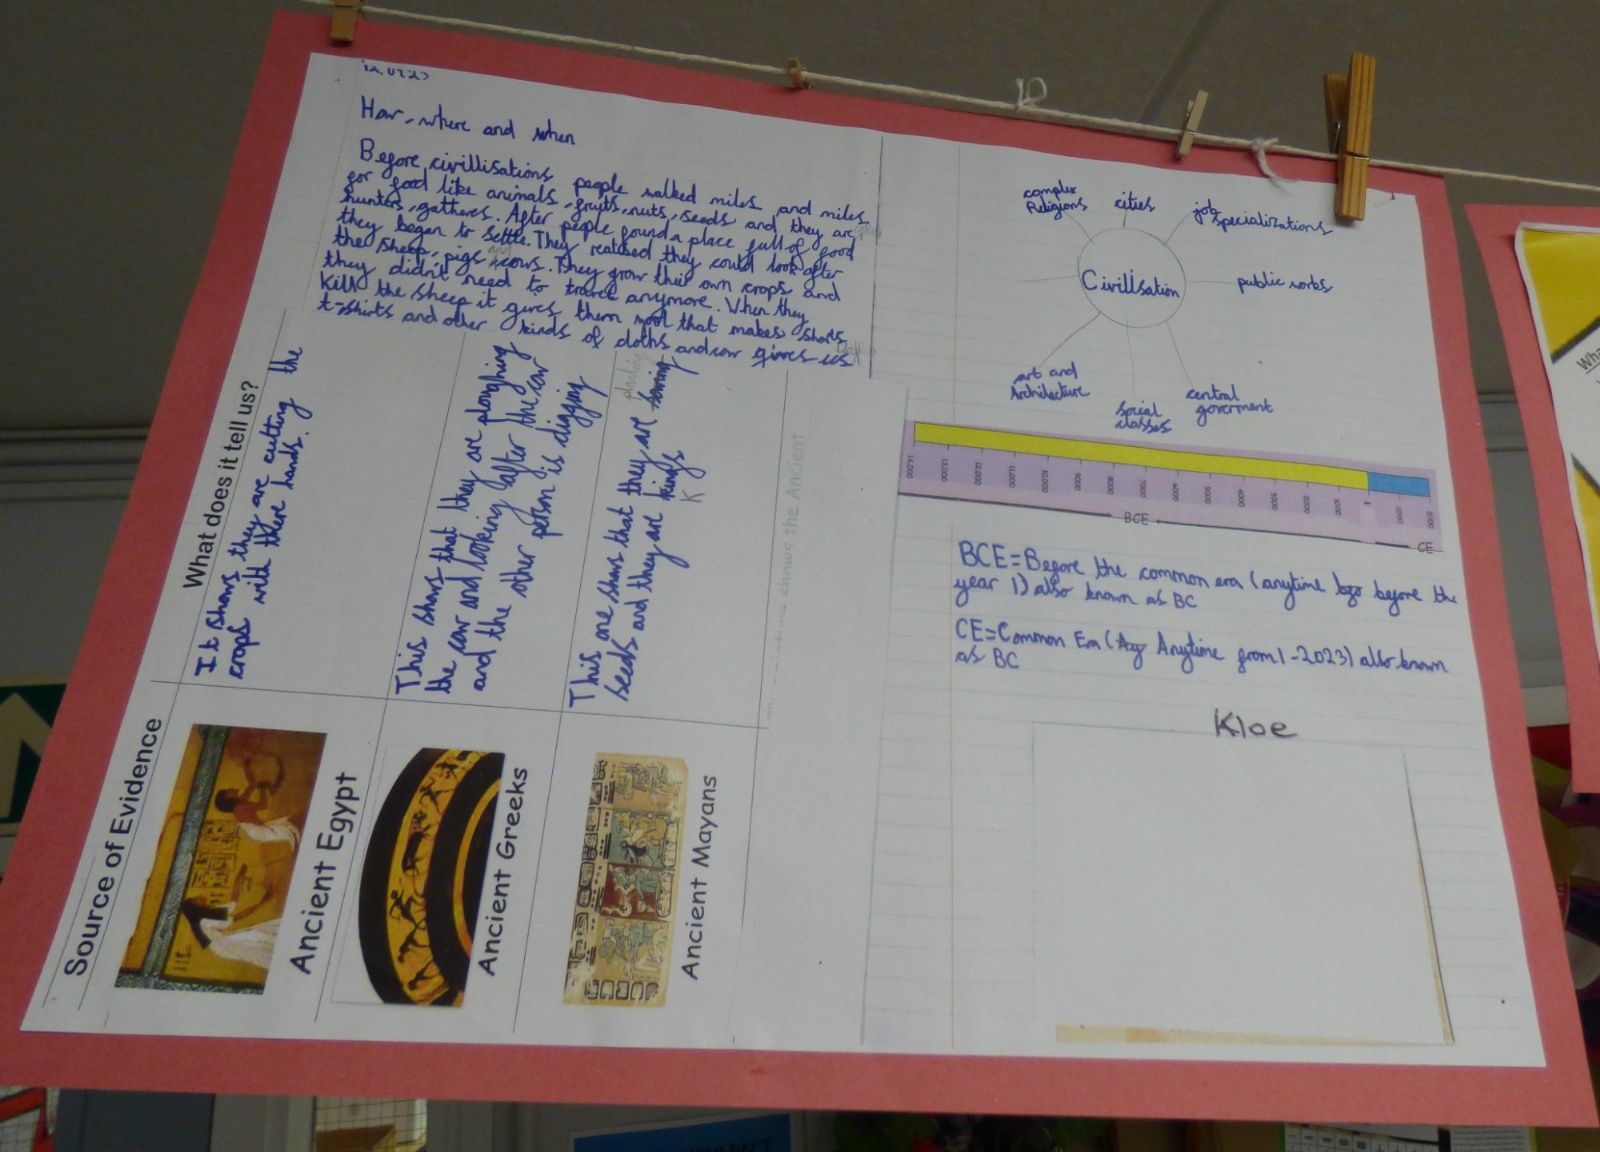 How, where and when
Before civillisations people walked miles and miles
for food like animals, fruits, nuts, seeds and they are
hunters, gatheres. After people found a place full of food
they began to settle. They realised they could look after
the sheep, pigs and cows. They grow their own crops and
they didn't need to travel anymore. When they
kill the sheep it gives them wool that makes shorts,
t-shirts and other kinds of cloths and cow gives us
Source of Evidence
What does it tell us?
Ancient Egypt
It shows they are cutting the
crops with there hands.
Ancient Greeks
This shows that they are ploughing
the cow and looking after the cow
and the other person is digging
Ancient Mayans
planting
This one shows that they are sowing
seeds and they are kings
K
shows the Ancient
complex
Religions
cities
job
specializations
Civillsation
public works
art and
Architecture
social
classes
central
goverment
14,000
13,000
12,000
11,000
10,000
9000
8000
7000
6000
5000
4000
3000
2000
1000
1
1000
2000
BCE
CE
BCE=Before the common era (anytime bfo before the
year 1) also known as BC
CE=Common Era (Ay Anytime from 1-2023) also known
as BC
Kloe